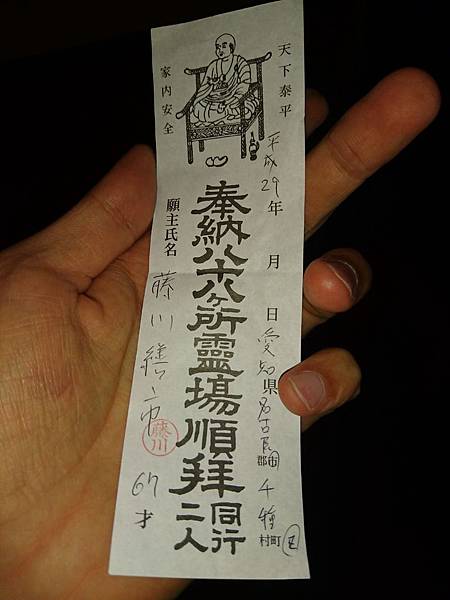 天下泰平
平成29年 月 日
愛知県名古屋市千種区
郡市
村町
奉納八十八ヶ所靈場順拝
同行二人
家内安全
願主氏名 藤川
藤川
67才